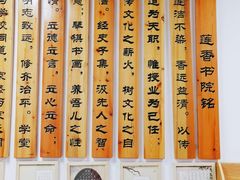 莲香书院铭
洁不染，香远益清。以传
道为天职，惟授业为己任，
文化之薪火，树文化之自
经史子集，汲先人之智
琴棋书画，养吾儿之性
立德立言，立心立命
志致远，修齐治平。学堂